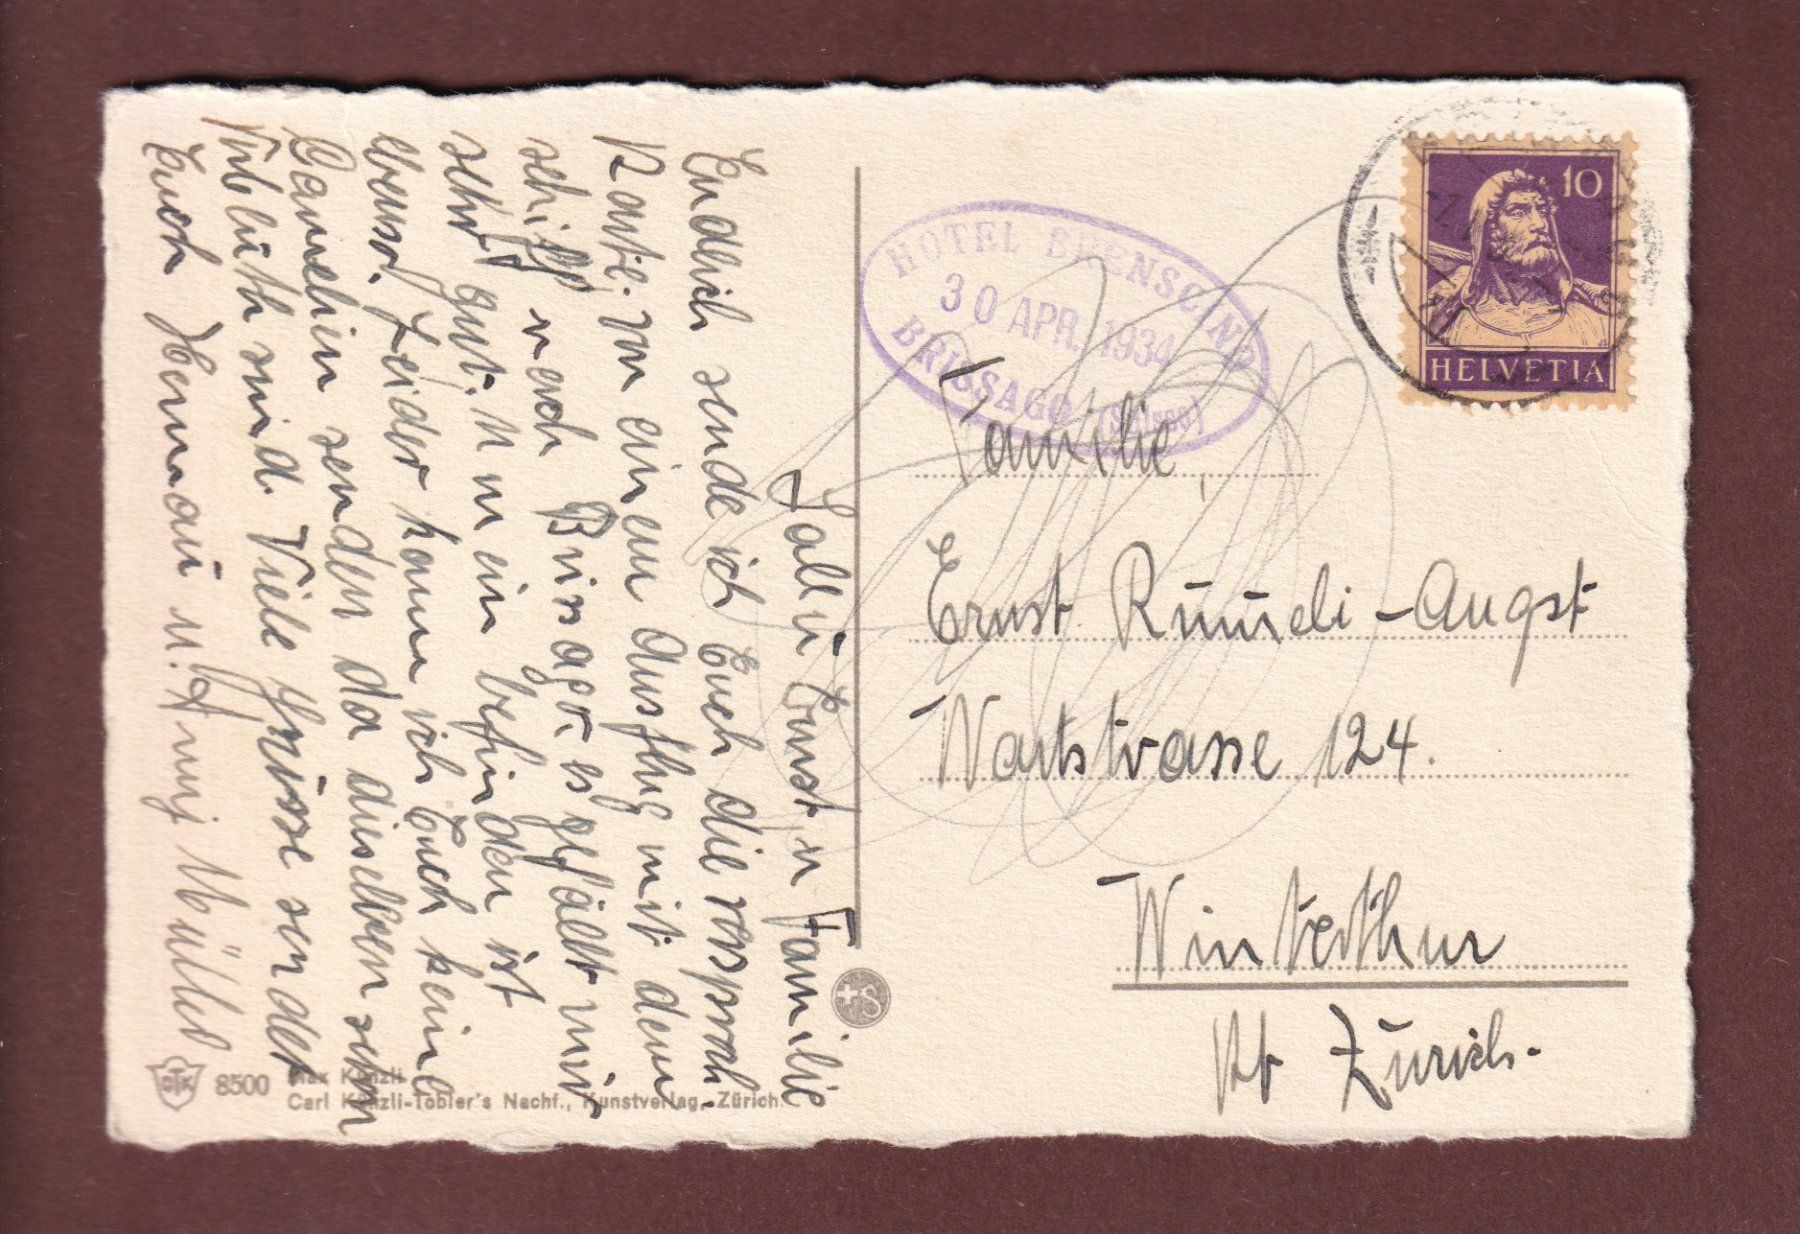 Salü Ernst u Familie
Endlich sende ich Euch die versproch
Karte. von einem Ausflug mit dem
schiff nach Brisago. es gefällt mir
sehr gut. Mein befinden ist
ebenso. Leider kann ich Euch keine
Camelien senden da dieselben schon
verblüht sind. Viele Grüsse sendet
Euch Hermann u. Anny Müller
HOTEL BRENSCINO
30 APR. 1934
BRISSAGO (Suisse)
10
HELVETIA
Familie
Ernst -Augst
Wartstrasse 124.
Winterthur
Kt Zürich.
8500 Max Künzli
Carl Künzli-Tobler's Nachf., Kunstverlag, Zürich.